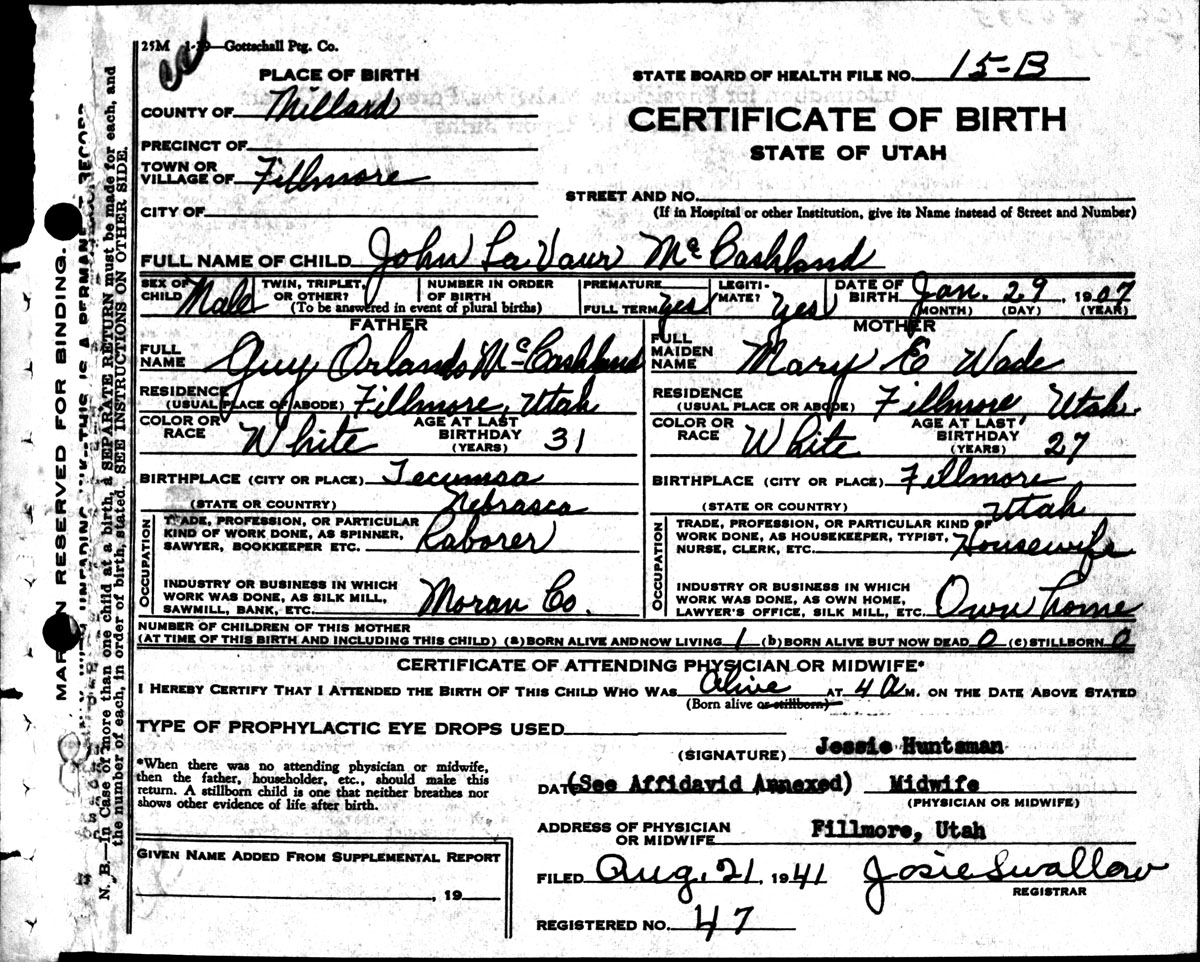 25M 1-39—Gottschall Ptg. Co.
PLACE OF BIRTH
STATE BOARD OF HEALTH FILE NO. 15-B
COUNTY OF Millard
CERTIFICATE OF BIRTH
PRECINCT OF
STATE OF UTAH
TOWN OR VILLAGE OF Fillmore
STREET AND NO.
CITY OF
(If in Hospital or other Institution, give its Name instead of Street and Number)
FULL NAME OF CHILD John La Vaur McCashland
SEX OF CHILD Male
TWIN, TRIPLET, OR OTHER?
NUMBER IN ORDER OF BIRTH
(To be answered in event of plural births)
PREMATURE
FULL TERM yes
LEGITI-MATE? Yes
DATE OF BIRTH Jan. 29, 1907
(MONTH) (DAY) (YEAR)
FATHER
FULL NAME Guy Orlando McCashland
RESIDENCE (USUAL PLACE OF ABODE) Fillmore, Utah
COLOR OR RACE White AGE AT LAST BIRTHDAY (YEARS) 31
BIRTHPLACE (CITY OR PLACE) Tecumsa
(STATE OR COUNTRY) Nebrasca
OCCUPATION
TRADE, PROFESSION, OR PARTICULAR
KIND OF WORK DONE, AS SPINNER,
SAWYER, BOOKKEEPER ETC. Laborer
INDUSTRY OR BUSINESS IN WHICH
WORK WAS DONE, AS SILK MILL,
SAWMILL, BANK, ETC. Moran Co.
MOTHER
FULL MAIDEN NAME Mary E Wade
RESIDENCE (USUAL PLACE OR ABODE) Fillmore, Utah.
COLOR OR RACE White AGE AT LAST BIRTHDAY (YEARS) 27
BIRTHPLACE (CITY OR PLACE) Fillmore
(STATE OR COUNTRY) Utah
OCCUPATION
TRADE, PROFESSION, OR PARTICULAR KIND OF
WORK DONE, AS HOUSEKEEPER, TYPIST,
NURSE, CLERK, ETC. Housewife
INDUSTRY OR BUSINESS IN WHICH
WORK WAS DONE, AS OWN HOME,
LAWYER'S OFFICE, SILK MILL, ETC. Own home
NUMBER OF CHILDREN OF THIS MOTHER
(AT TIME OF THIS BIRTH AND INCLUDING THIS CHILD) (a) BORN ALIVE AND NOW LIVING 1 (b) BORN ALIVE BUT NOW DEAD 0 (c) STILLBORN 0
CERTIFICATE OF ATTENDING PHYSICIAN OR MIDWIFE*
I HEREBY CERTIFY THAT I ATTENDED THE BIRTH OF THIS CHILD WHO WAS Alive AT 4 A M. ON THE DATE ABOVE STATED
(Born alive or stillborn)
TYPE OF PROPHYLACTIC EYE DROPS USED
(SIGNATURE) Jessie Huntsman
*When there was no attending physician or midwife,
then the father, householder, etc., should make this
return. A stillborn child is one that neither breathes nor
shows other evidence of life after birth.
DATE (See Affidavid Annexed) Midwife
(PHYSICIAN OR MIDWIFE)
ADDRESS OF PHYSICIAN OR MIDWIFE Fillmore, Utah
GIVEN NAME ADDED FROM SUPPLEMENTAL REPORT
, 19
FILED Aug. 21, 1941 Josie Swallow
REGISTRAR
REGISTERED NO. 47
RESERVED FOR BINDING.
THIS IS A PERMANENT RECORD
N. B.—In Case of more than one child at a birth, a SEPARATE RETURN must be made for each, and
the number of each, in order of birth, stated. SEE INSTRUCTIONS ON OTHER SIDE.